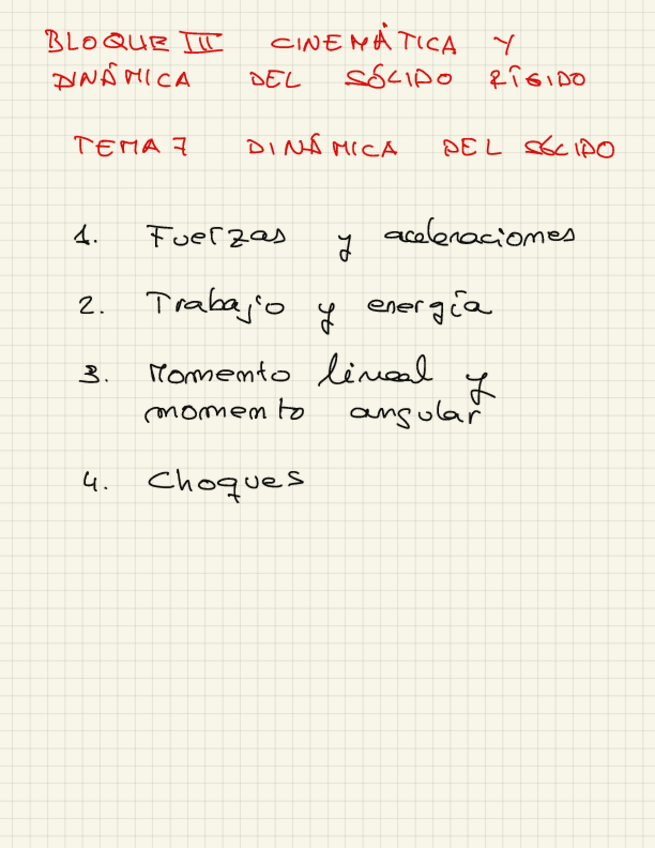 BLOQUE III CINEMÁTICA Y
DINÁMICA DEL SÓLIDO RÍGIDO
TEMA 7 DINÁMICA DEL SÓLIDO
1. Fuerzas y aceleraciones
2. Trabajo y energía
3. Momento lineal y
momento angular
4. Choques